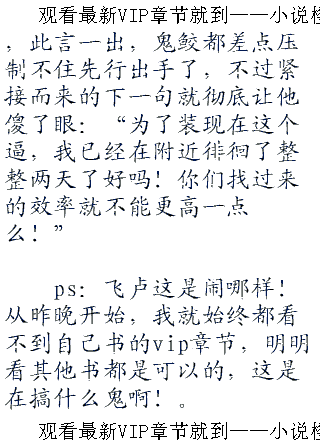 观看最新VIP章节就到——小说
，此言一出，鬼鲛都差点压
制不住先行出手了，不过紧
接而来的下一句就彻底让他
傻了眼：“为了装现在这个
逼，我已经在附近徘徊了整
整两天了好吗！你们找过来
的效率就不能更高一点
么！”
ps：飞卢这是闹哪样！
从昨晚开始，我就始终都看
不到自己书的vip章节，明明
看其他书都是可以的，这是
在搞什么鬼啊！。
观看最新VIP章节就到——小说